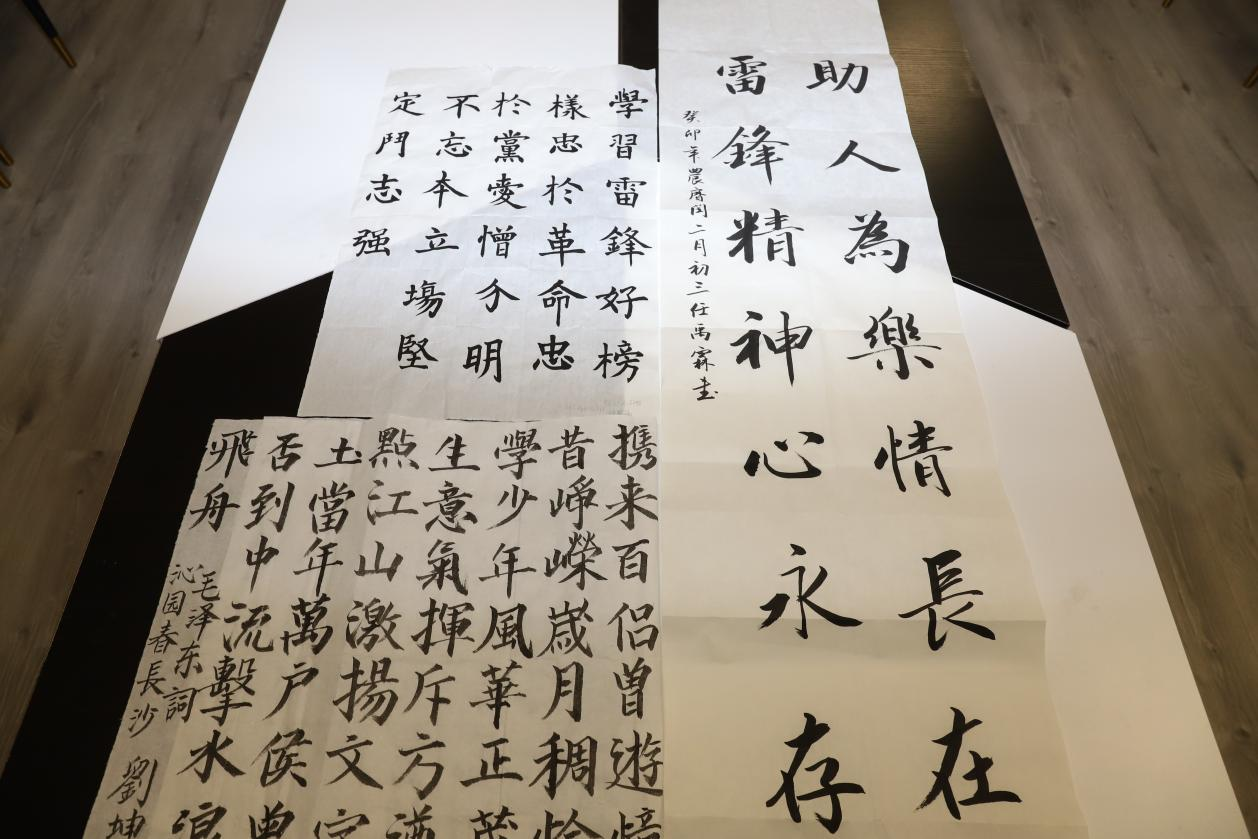 助人為樂情長在
雷鋒精神心永存
癸卯年農曆閏二月初三任禹霖書
學習雷鋒好榜
樣忠於革命忠
於黨愛憎分明
不忘本立場堅
定鬥志强
携来百侣曾遊憶
昔崢嶸嵗月稠恰
學少年風華正茂
生意氣揮斥方遒
點江山激揚文字
土當年萬户侯曾
否到中流擊水浪
飛舟
毛泽东詞
沁园春長沙
劉坤